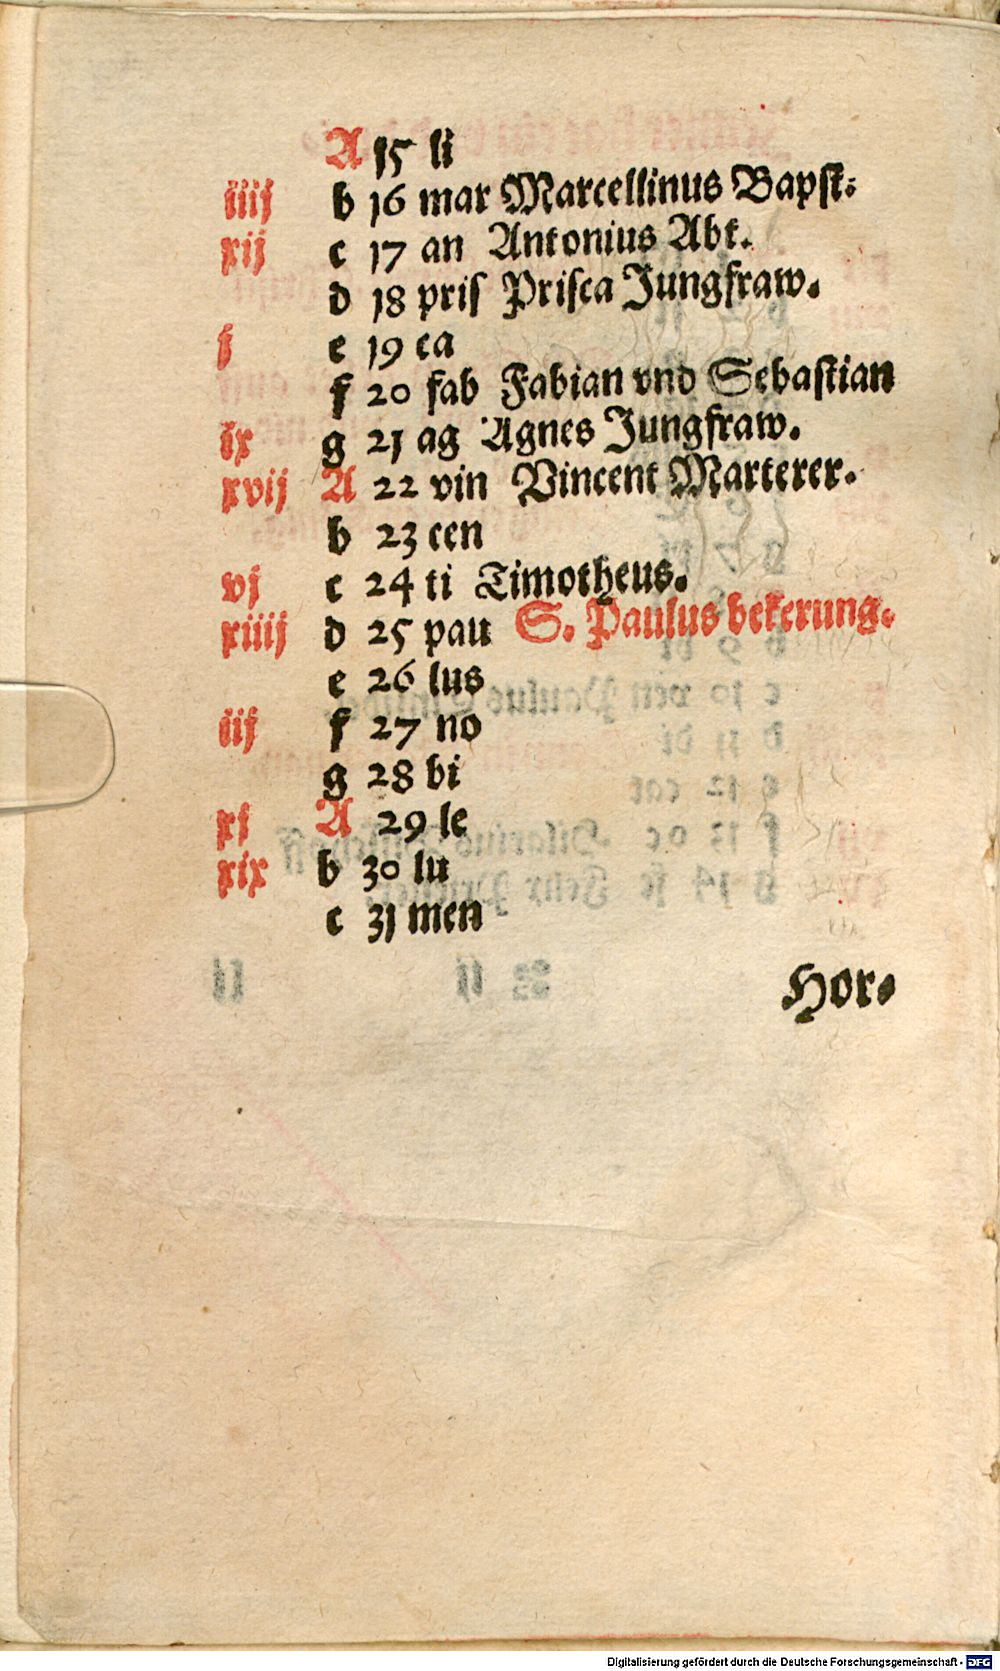 A 15 li
iiij b 16 mar Marcellinus Bapst:
xij c 17 an Antonius Abt.
d 18 pris Prisca Jungfraw.
j e 19 ca
f 20 fab Fabian vnd Sebastian
ix g 21 ag Agnes Jungfraw.
xvij A 22 vin Vincent Marterer.
b 23 cen
vj c 24 ti Timotheus.
xiiij d 25 pau S. Paulus bekerung.
e 26 lus
iij f 27 no
g 28 bi
xj A 29 le
xix b 30 lu
c 31 men
Hor.
Digitalisierung gefördert durch die Deutsche Forschungsgemeinschaft - DFG